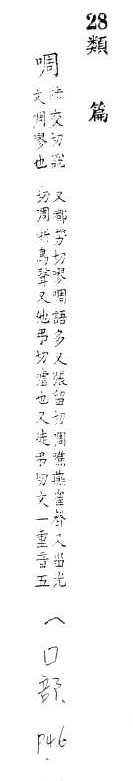 28
類篇
啁
陟交切說
文啁嘐也
又都勞切嘐啁語多又張留切啁噍燕雀聲又當尤
切啁哳鳥聲又他弔切也又徒弔切文一重音五
(口部.
P46